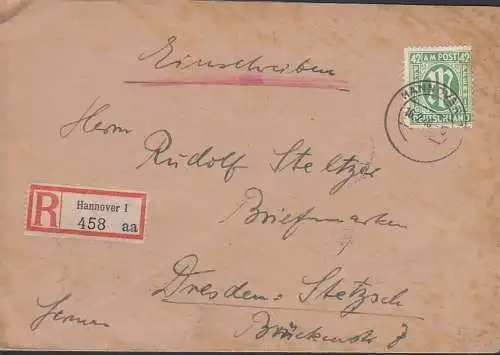 Einschreiben
42 AM POST 42
HANNOVER
DEUTSCHLAND
Herrn
Rudolf Steltzer
R Hannover 1
458 aa
Briefmarken
Dresden-Stetzsch
Brückenstr 7